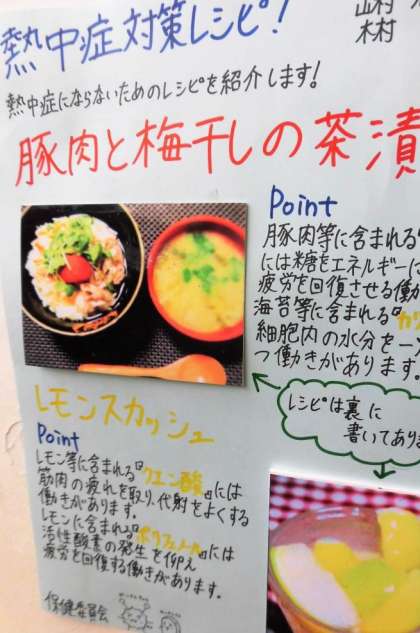 熱中症対策レシピ!
木村
熱中症にならないためのレシピを紹介します!
豚肉と梅干しの茶漬
Point
豚肉等に含まれる『
には糖をエネルギーに
疲労を回復させる働
海苔等に含まれる『カリ
細胞内の水分を一
つ働きがあります。
レシピは裏に
書いてあり
レモンスカッシュ
Point
レモン等に含まれる『クエン酸』には
筋肉の疲れを取り、代謝をよくする
働きがあります。
レモンに含まれる『ポリフェノール』には
活性酸素の発生を抑え
疲労を回復する働きがあります。
保健委員会